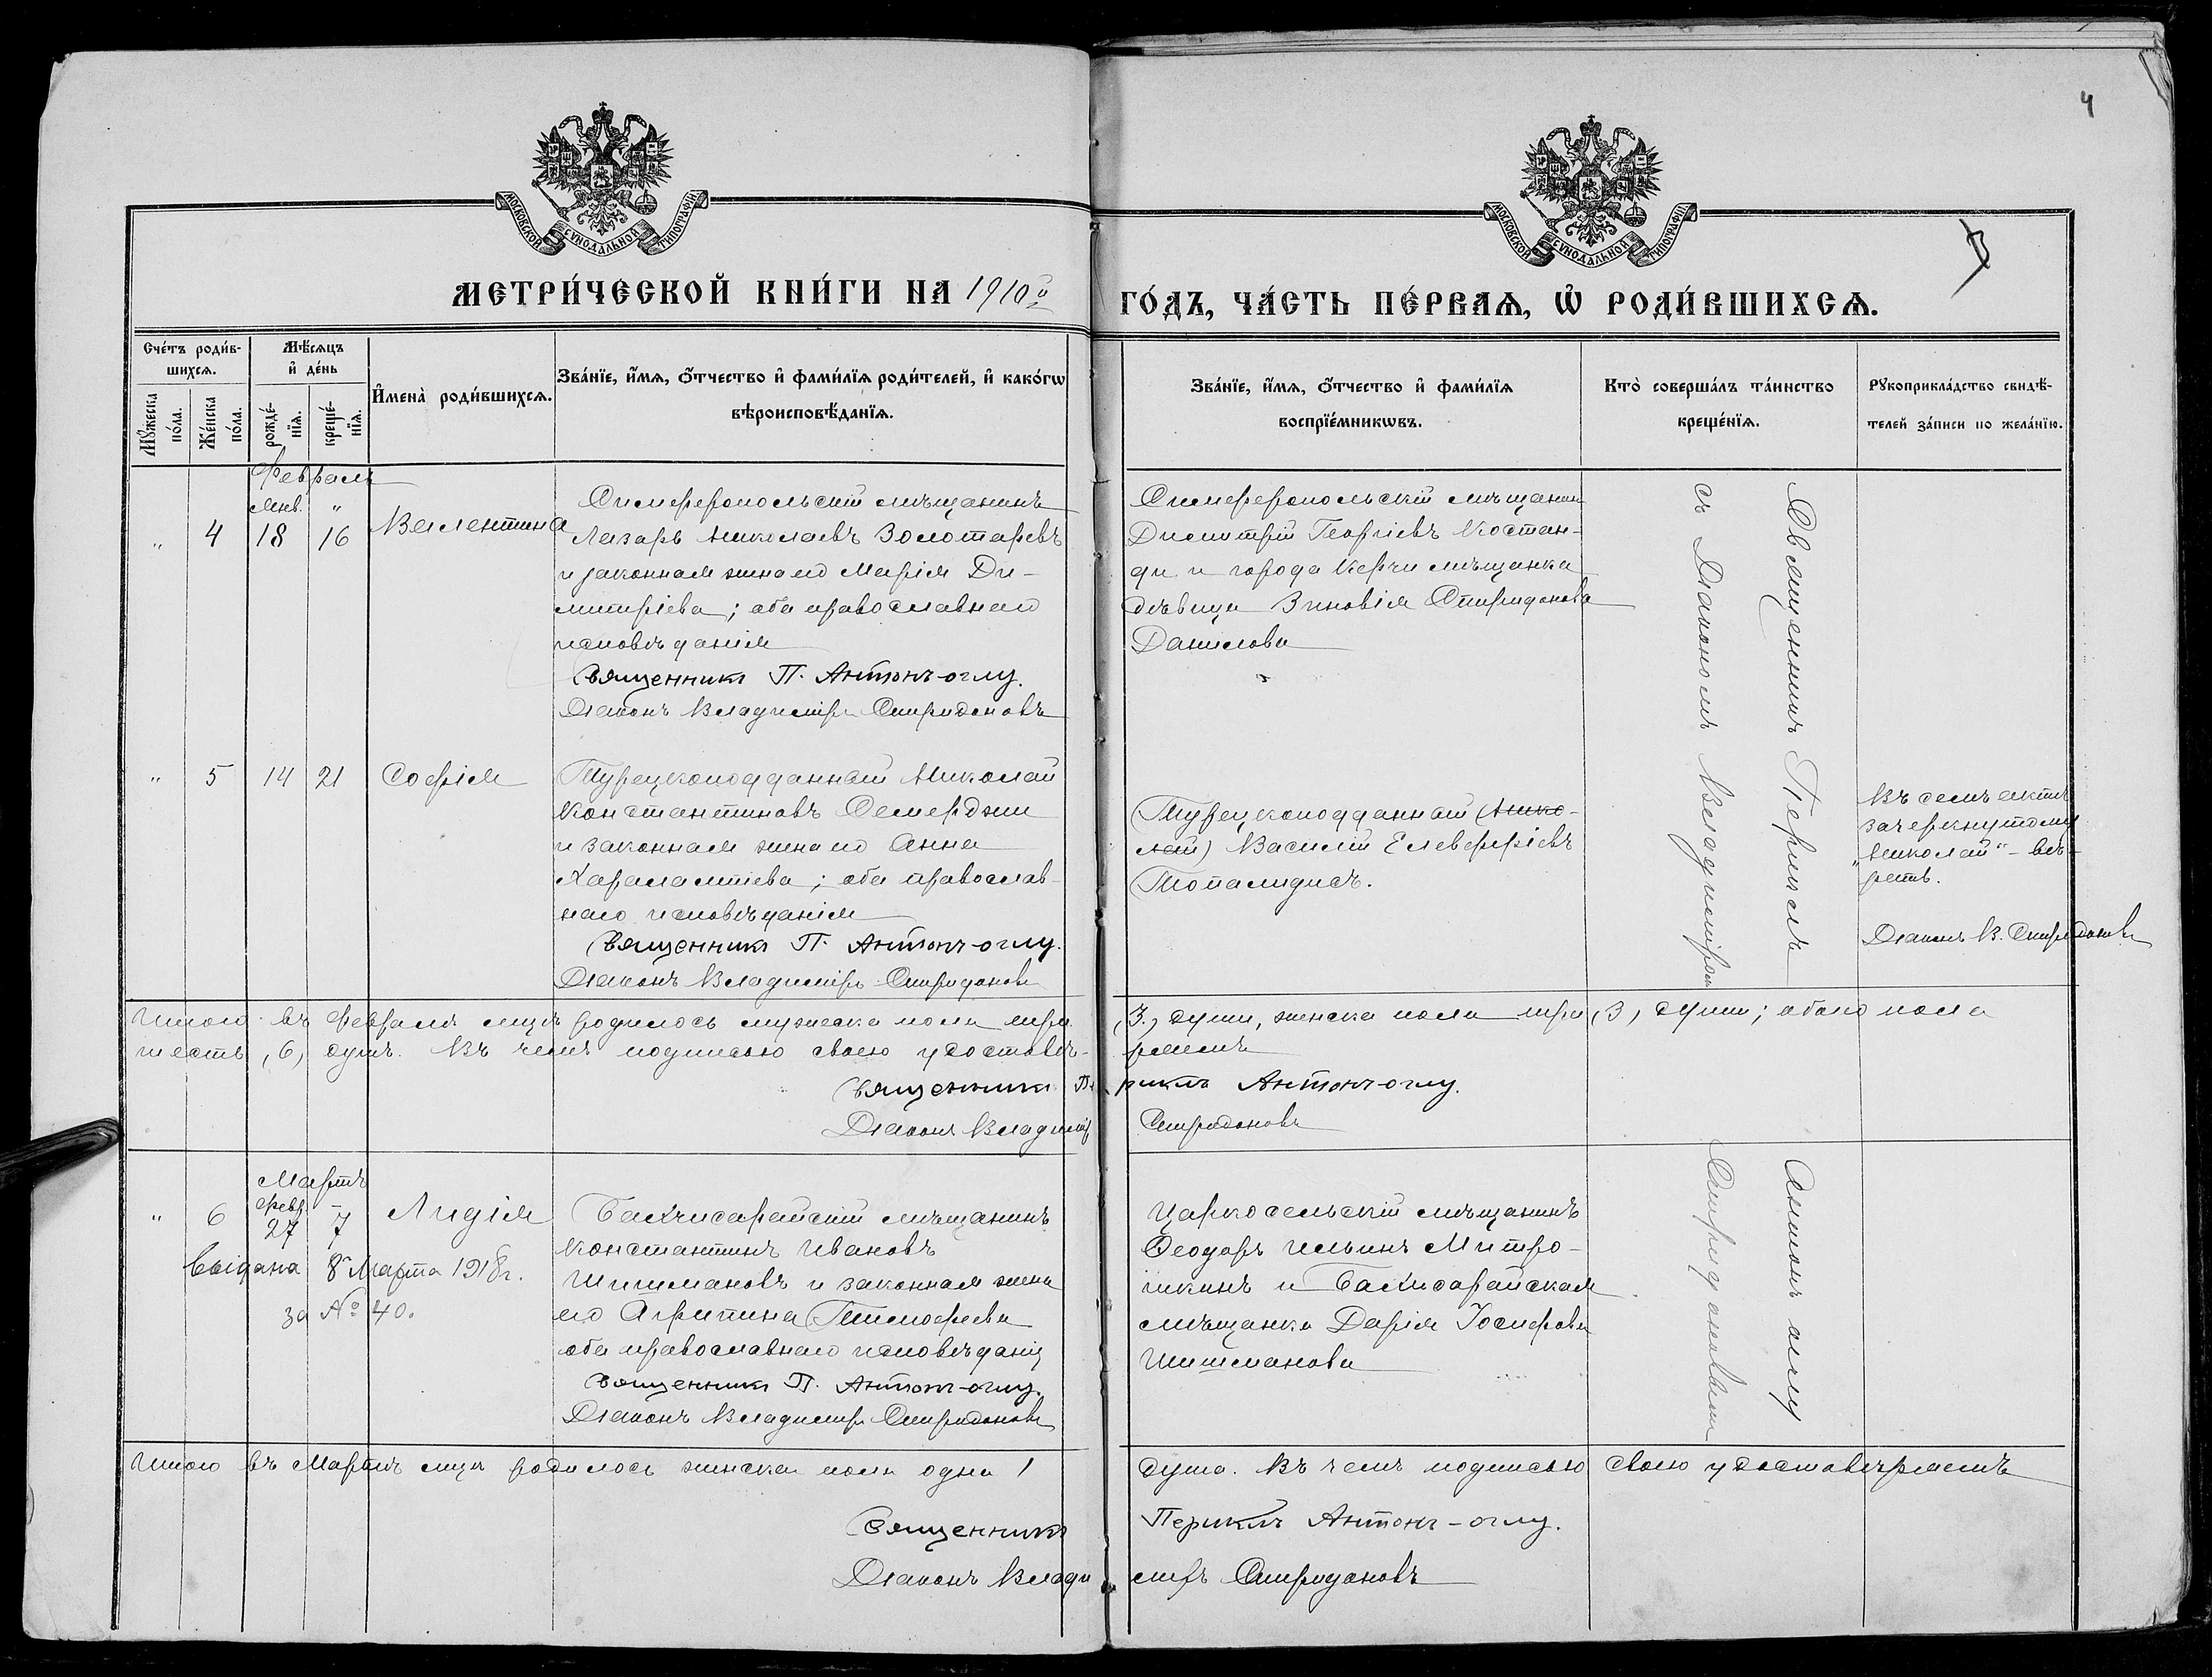 4
МОСКОВСКОЙ СУНОДАЛЬНОЙ ТИПОГРАФІИ
МОСКОВСКОЙ СУНОДАЛЬНОЙ ТИПОГРАФІИ
МЕТРИ́ЧЕСКОЙ КНИ́ГИ НА 1910й
ГО́ДЪ, ЧА́СТЬ ПЕ́РВАѦ, Ѽ РОДИ́ВШИХСѦ.
Сче́тъ роди́в-
шихсѧ.
Мꙋ́жеска по́ла.
Же́нска по́ла.
Мѣ́сѧцъ
и҆ де́нь
рожде́-
нїѧ.
креще́-
нїѧ.
И҆мена̀ роди́вшихсѧ.
Зва́нїе, и҆́мѧ, ѻ҆́тчество и҆ фами́лїѧ роди́телей, и҆ како́гѡ
вѣроисповѣ́данїѧ.
Зва́нїе, и҆́мѧ, ѻ҆́тчество и҆ фами́лїѧ
воспрїе́мникѡвъ.
Кто̀ соверша́лъ та́инство
креще́нїѧ.
Рꙋкоприкла́дство свидѣ́-
телей за́писи по жела́нїю.
Февраль
Янв. "
" 4 18 16 Валентина
Симферопольскій мѣщанинъ
Лазарь Николаевъ Золотаревъ
и законная жена его Марія Ди-
митріева; оба православнаго
исповѣданія
Священникъ П. Антонъ-оглу.
Діаконъ Владиміръ Спиридоновъ
Симферопольскій мѣщанин
Димитрій Георгіевъ Костан-
ди и города Керчи мѣщанка
дѣвица Зиновія Спиридонова
Данилова
Священникъ Периклъ
съ Діакономъ Владиміромъ
" 5 14 21 Софія
Турецкоподданный Николай
Константиновъ Семерджи
и законная жена его Анна
Харалампіева; оба православ-
наго исповѣданія
Священникъ П. Антонъ-оглу.
Діаконъ Владиміръ Спиридоновъ
Турецкоподданный (Нико-
лай) Василій Елевферіевъ
Топалидисъ.
Въ семъ актѣ
зачеркнутому
"Николай" - вѣ-
рить.
Діаконъ В. Спиридоновъ
Итого въ Февралѣ мцѣ родилось мужеска пола три (3.) души, женска пола три (3) души; обоего пола
шесть (6) душъ. Въ чемъ подписью своею удостовѣ-ряемъ
Священникъ Периклъ Антонъ-оглу.
Діаконъ Владиміръ Спиридоновъ
Мартъ
Февр. -
" 6 27 7 Лидія
Выдана 8 Марта 1918 г.
за № 40.
Бахчисарайскій мѣщанинъ
Константинъ Ивановъ
Шишмановъ и законная жена
его Агрипина Тимофеева
оба православнаго исповѣданія
Священникъ П. Антонъ-оглу.
Діаконъ Владиміръ Спиридоновъ
Царкосельскій мѣщанинъ
Ѳеодоръ Ильинъ Митро-
шкинъ и Бахчисарайская
мѣщанка Дарія Іосифова
Шишманова
Антонъ оглу
Спиридоновымъ
Итого въ Мартѣ мцѣ родилось женска пола одна 1 душа. Въ чемъ подписью своею удостовѣряемъ
Священникъ Периклъ Антонъ-оглу.
Діаконъ Владиміръ Спиридоновъ